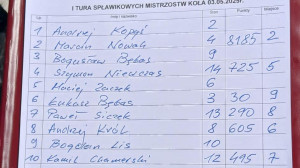 I TURA SPŁAWIKOWYCH MISTRZOSTW KOŁA 03.05.2025r.
Punkty Miejsce
1 Andrzej 2
2 Marcin Nowak 4 8185 2
3 Bogusław Bębas 9
4 Szymon Niewczas 14 725 5
5 Maciej Żaczek 6
6 Łukasz Bębas 3 30 9
7 Paweł Siczek 13 290 8
8 Andrzej Król 8 605 6
9 Bogdan Lis 10
10 Kamil 12 495 7